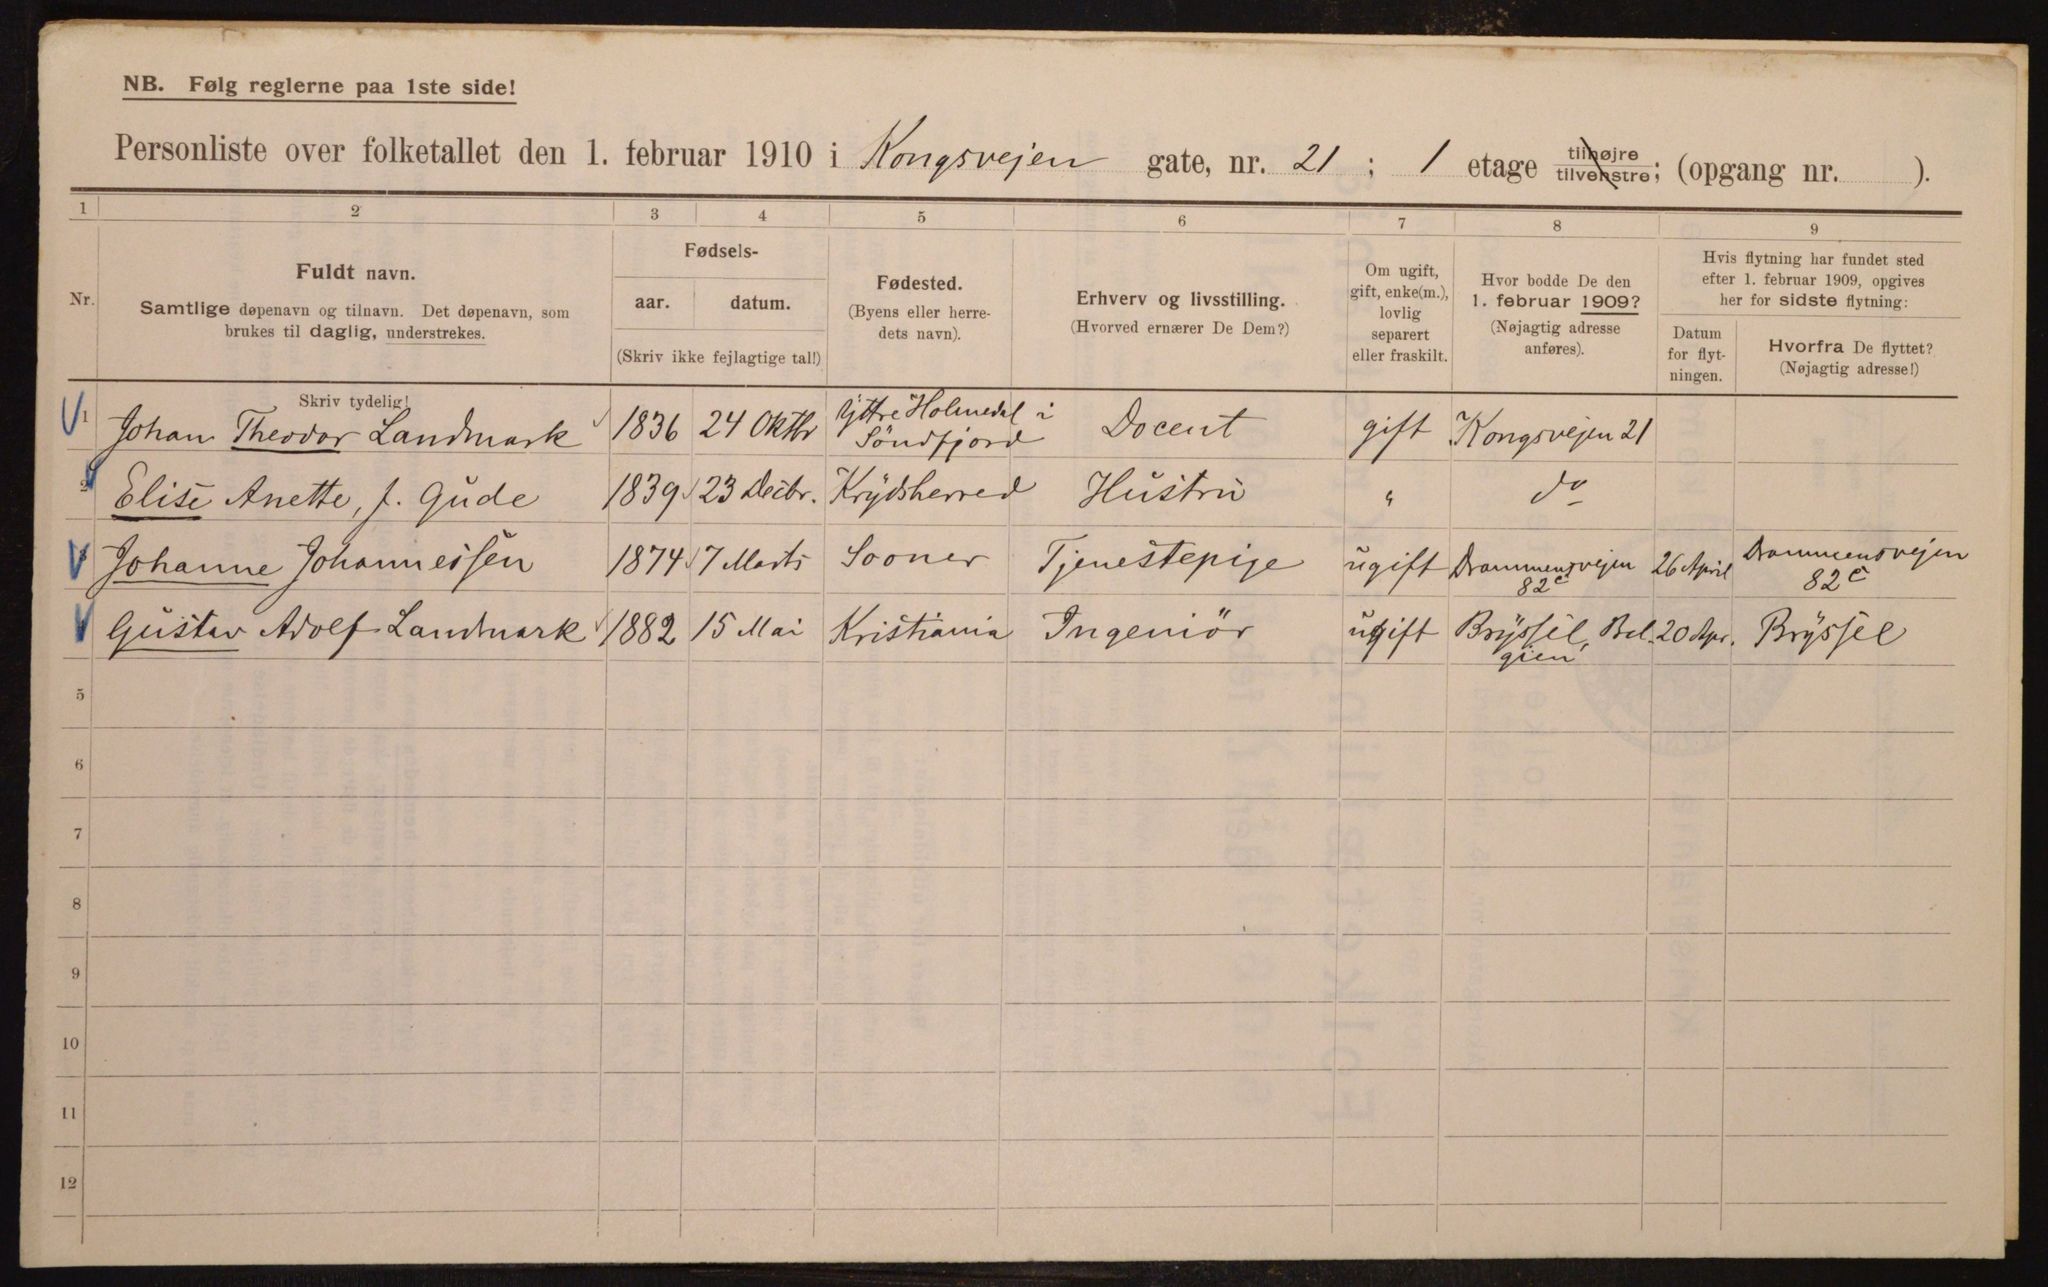 NB. Følg reglerne paa 1ste side!
Personliste over folketallet den 1. februar 1910 i Kongsvejen gate, nr. 21 ; 1 etage tilhøjre tilvenstre; (opgang nr. ).
1 2 3 4 5 6 7 8 9
Nr.
Fuldt navn.
Samtlige døpenavn og tilnavn. Det døpenavn, som
brukes til daglig, understrekes.
Fødsels-
aar. datum.
(Skriv ikke fejlagtige tal!)
Fødested.
(Byens eller herre-
dets navn).
Erhverv og livsstilling.
(Hvorved ernærer De Dem?)
Om ugift,
gift, enke(m.),
lovlig
separert
eller fraskilt.
Hvor bodde De den
1. februar 1909?
(Nøjagtig adresse
anføres).
Hvis flytning har fundet sted
efter 1. februar 1909, opgives
her for sidste flytning:
Datum
for flyt-
ningen.
Hvorfra De flyttet?
(Nøjagtig adresse!)
Skriv tydelig!
1 Johan Theodor Landmark 1836 24 Oktbr Yttre Holmedal i Söndfjord Docent gift Kongsvejen 21
2 Elise Anette, f. Gude 1839 23 Decbr. Krydsherred Hustru " do
Johanne Johannessen 1874 7 Marts Sooner Tjenestepige ugift Drammensvejen 82c 26 April Drammensvejen 82c
Gustav Adolf Landmark 1882 15 Mai Kristiania Ingeniör ugift Bryssel, Bel- gien 20 Apr. Bryssel
5
6
7
8
9
10
11
12